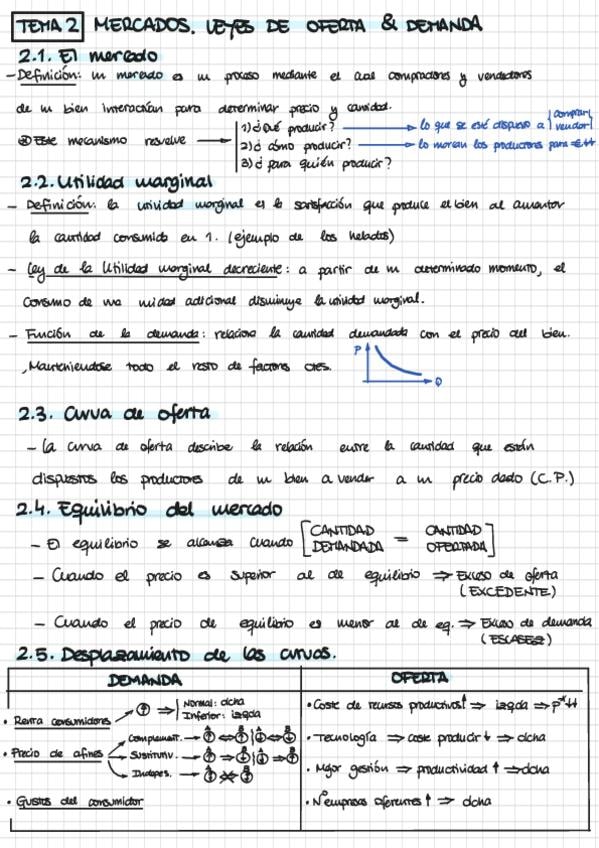 TEMA 2 MERCADOS. LEYES DE OFERTA & DEMANDA
2.1. El mercado
- Definición: un mercado es un proceso mediante el cual compradores y vendedores
de un bien interactúan para determinar precio y cantidad.
Este mecanismo resuelve
1) ¿Qué producir? → lo que se esté dispuesto a comprar/ vender
2) ¿cómo producir? → lo marcan los productores para
3) ¿para quién producir?
2.2. Utilidad marginal
- Definición: la utilidad marginal es la satisfacción que produce el bien al aumentar
la cantidad consumida en 1. (ejemplo de los helados)
- Ley de la Utilidad marginal decreciente: a partir de un determinado momento, el
consumo de una unidad adicional disminuye la utilidad marginal.
- Función de la demanda: relaciona la cantidad demandada con el precio del bien.
Manteniéndose todo el resto de factores ctes.
P
Q
2.3. Curva de oferta
- La curva de oferta describe la relación entre la cantidad que están
dispuestos los productores de un bien a vender a un precio dado (C.P.)
2.4. Equilibrio del mercado
- El equilibrio se alcanza cuando [CANTIDAD DEMANDADA = CANTIDAD OFERTADA]
- Cuando el precio es superior al de equilibrio ⇒ Exceso de oferta
(EXCEDENTE)
- Cuando el precio de equilibrio es menor al de eq. ⇒ Exceso de demanda
(ESCASEZ)
2.5. Desplazamiento de las curvas.
DEMANDA
• Renta consumidores → ↑ ⇒ Normal: dcha
Inferior: izqda
• Precio de afines
Complement.
Sustitutiv.
Indepes.
• Gustos del consumidor
OFERTA
• Coste de recursos productivos ↑ ⇒ izqda ⇒
• Tecnología ⇒ coste producir ↓ ⇒ dcha
• Mejor gestión ⇒ productividad ↑ ⇒ dcha
• Nº empresas oferentes ↑ ⇒ dcha